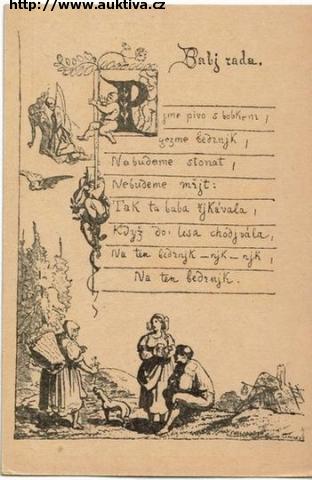 http://www.auktiva.cz
Babj rada.
Pjme pivo s bobkem,
gezme bedrnjk,
Nabudeme stonat,
Nebudeme mřjt:
Tak ta baba řjkávala,
Když do lesa chodjvála,
Na ten bedrnjk – njk – njk,
Na ten bedrnjk.